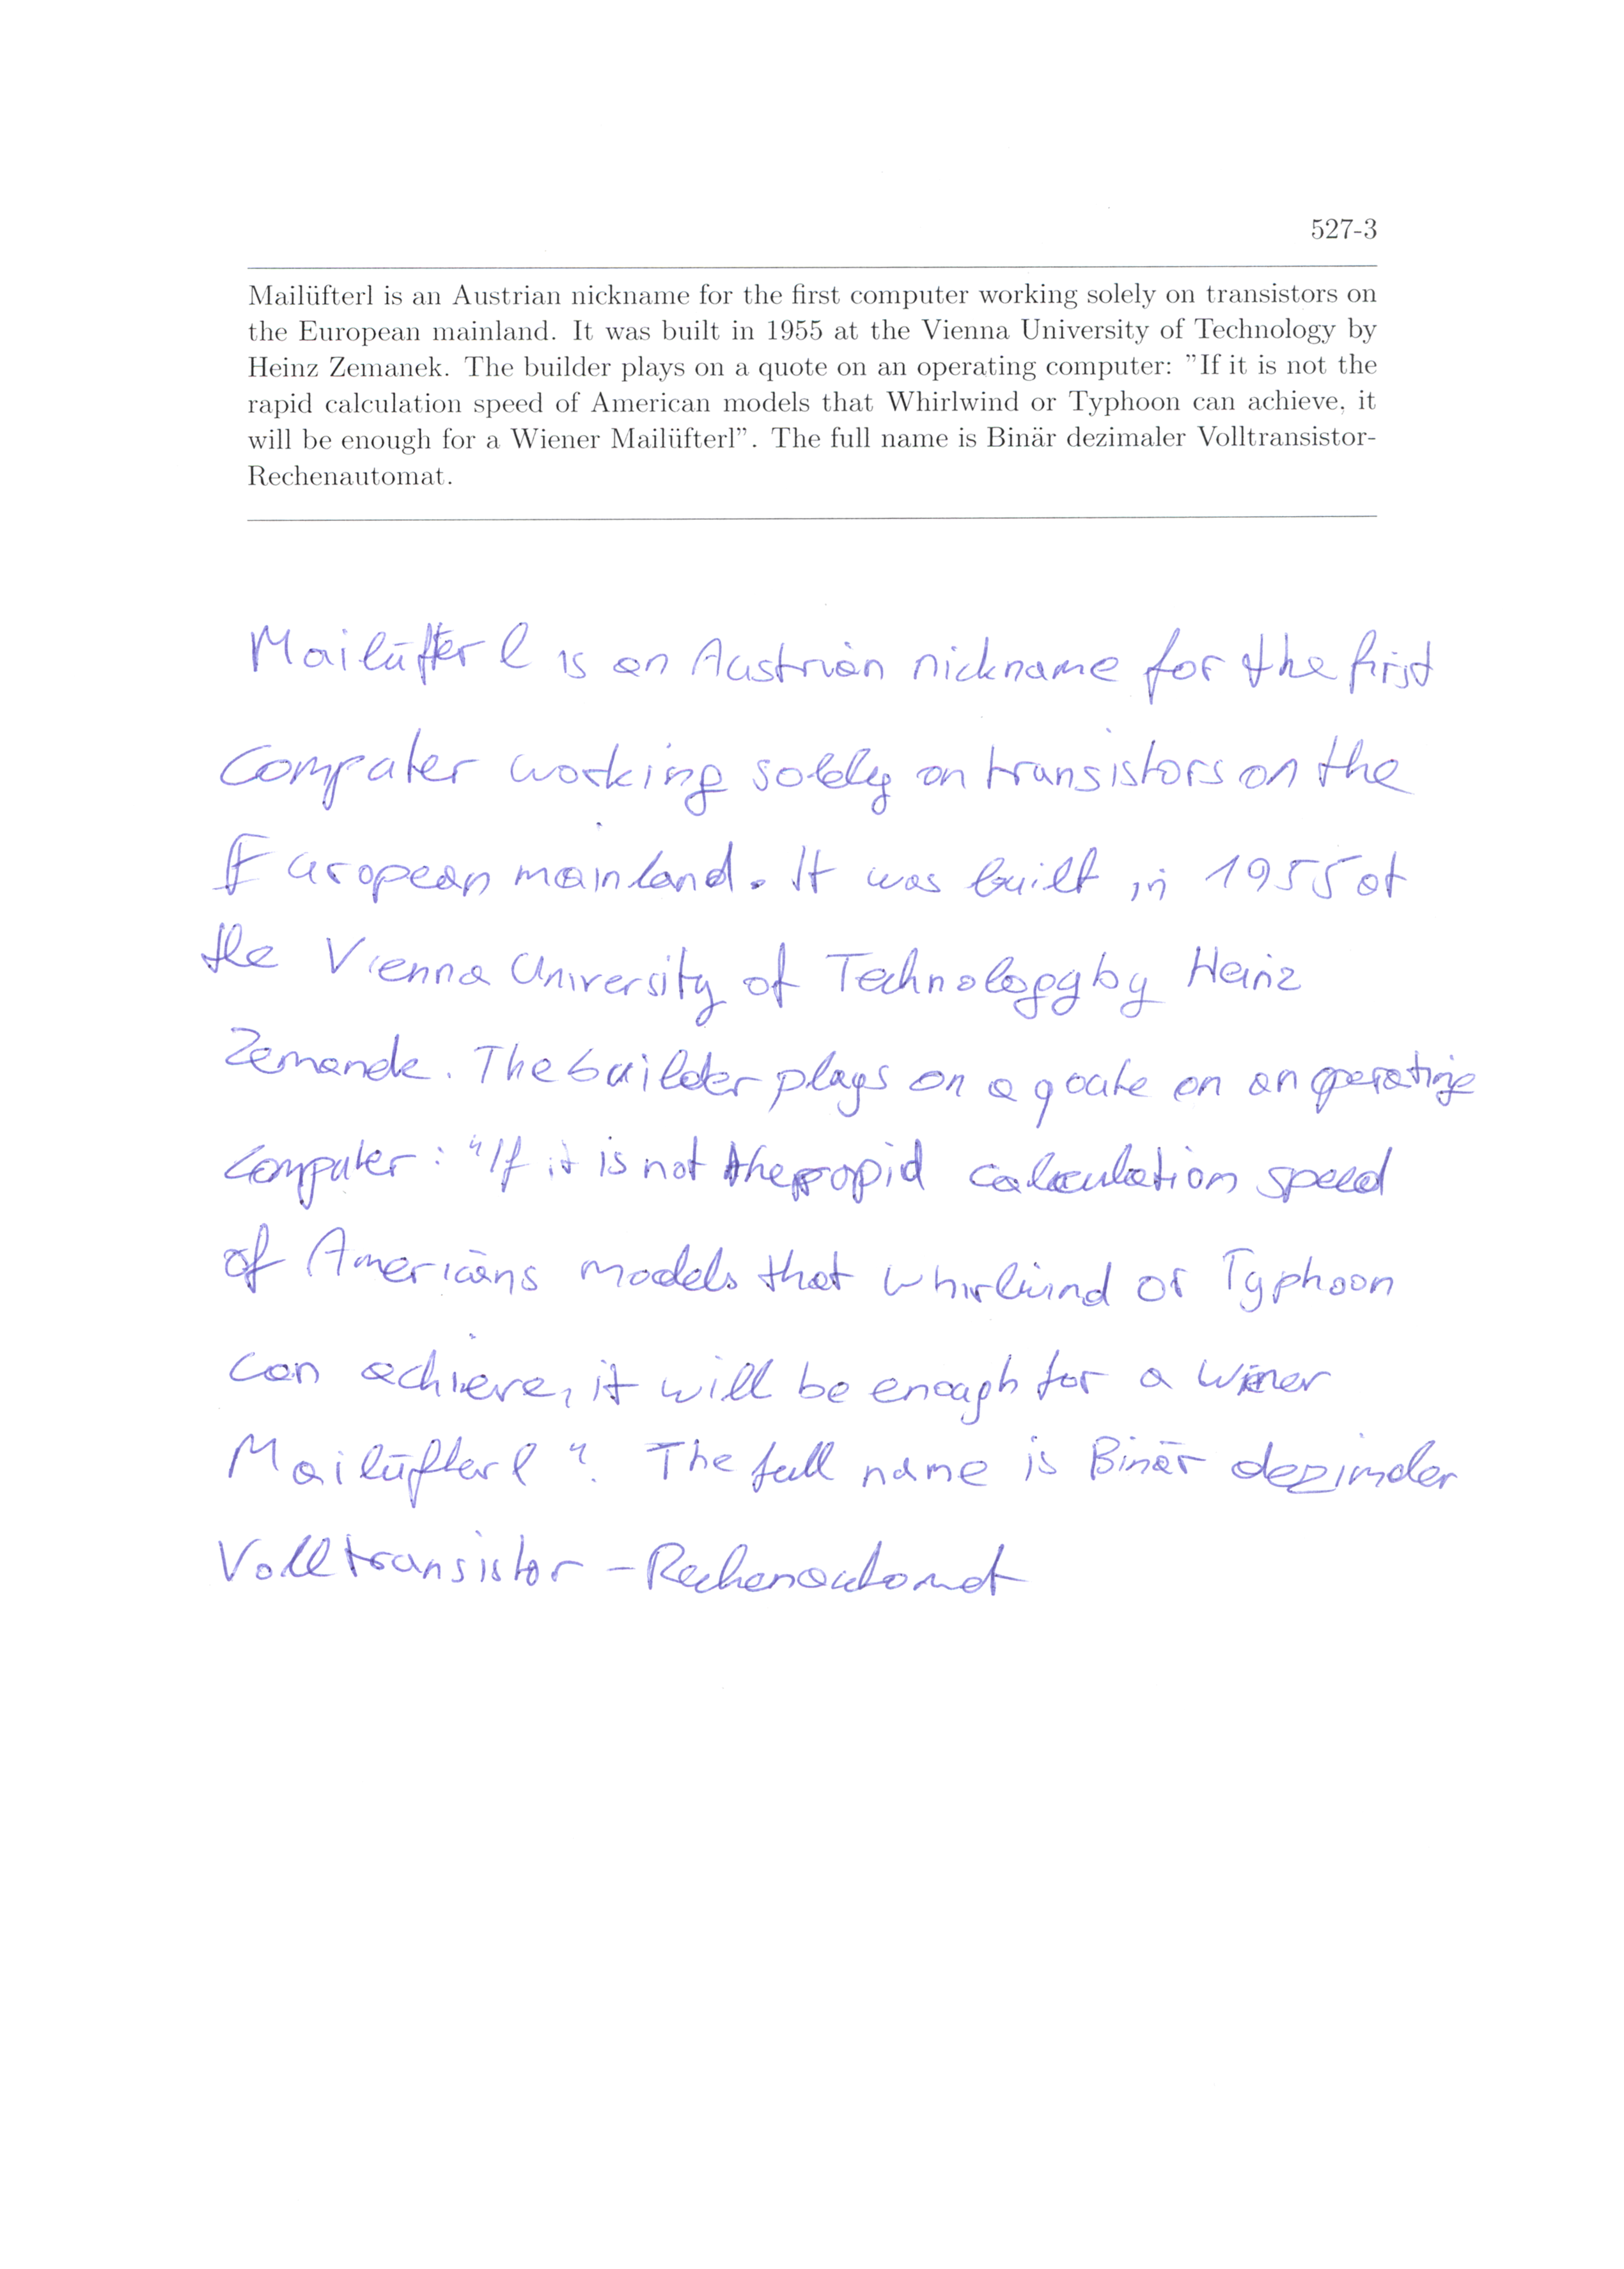 527-3
Mailüfterl is an Austrian nickname for the first computer working solely on transistors on
the European mainland. It was built in 1955 at the Vienna University of Technology by
Heinz Zemanek. The builder plays on a quote on an operating computer: "If it is not the
rapid calculation speed of American models that Whirlwind or Typhoon can achieve, it
will be enough for a Wiener Mailüfterl". The full name is Binär dezimaler Volltransistor-
Rechenautomat.
Mailüfterl is an Austrian nickname for the first
Computer working solely on transistors on the
European mainland. It was built in 1955 at
the Vienna University of Technology by Heinz
Zemanek. The builder plays on a qoute on an operating
Computer: "If it is not the rapid calculation speed
of Americans models that Whirlwind or Typhoon
can achieve, it will be enough for a Wiener
Mailüfterl". The full name is Binär dezimaler
Volltransistor-Rechenautomat